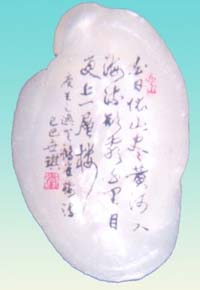 白日依山尽黄河入
海流欲穷千里目
更上一層楼
唐王之涣登鹳雀楼诗
己巳